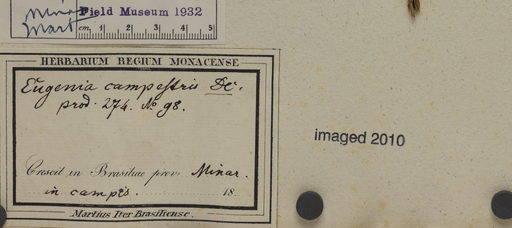 Minar
Mart
Field Museum 1932
cm. 1 2 3 4 5
HERBARIUM REGIUM MONACENSE
Eugenia campestris DC.
prod. 274. No 98.
Crescit in Brasiliae prov. Minar.
in campis. 18
Martius Iter Brasiliense.
imaged 2010